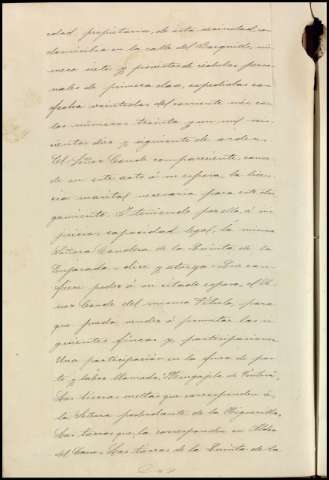 edad propietaria, de esta vecindad, con
domicilio en la calle del Barquillo, nú-
mero siete y provistos de cédulas perso-
nales de primera clase, expedidas con
fecha veintidos del corriente mes con
los números treinta y un mil
cientos diez y siguiente de orden.
El Señor Conde compareciente, conce-
de en este acto á su esposa la licen-
cia marital necesaria para este otor-
gamiento. Y teniendo por ello, á mi
juicio, capacidad legal, la misma
Señora Condesa de la Quinta de la
Enjarada, dice y otorga: Que con-
fiere poder á su citado esposo el Se-
ñor Conde del mismo Título, para
que pueda vender ó permutar las si-
guientes fincas y participaciones
Una participación en la finca de pas-
to y labor llamada, Mengajila de
Las tierras sueltas que corresponden á
la Señora poderdante de la Higueruela,
Las tierras que la corresponden en Aldea
del Cano, Las tierras de la Quinta de la